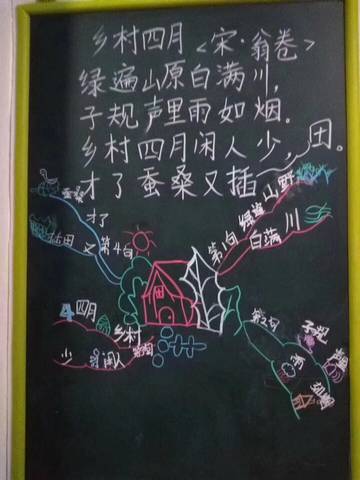 乡村四月<宋·翁卷>
绿遍山原白满川,
子规声里雨如烟。
乡村四月闲人少,
才了蚕桑又插田。
蚕桑
才了
插田
又
第4句
第1句
绿遍山野
白满川
4四月
乡村
少
闲人
第2句
子规
声里